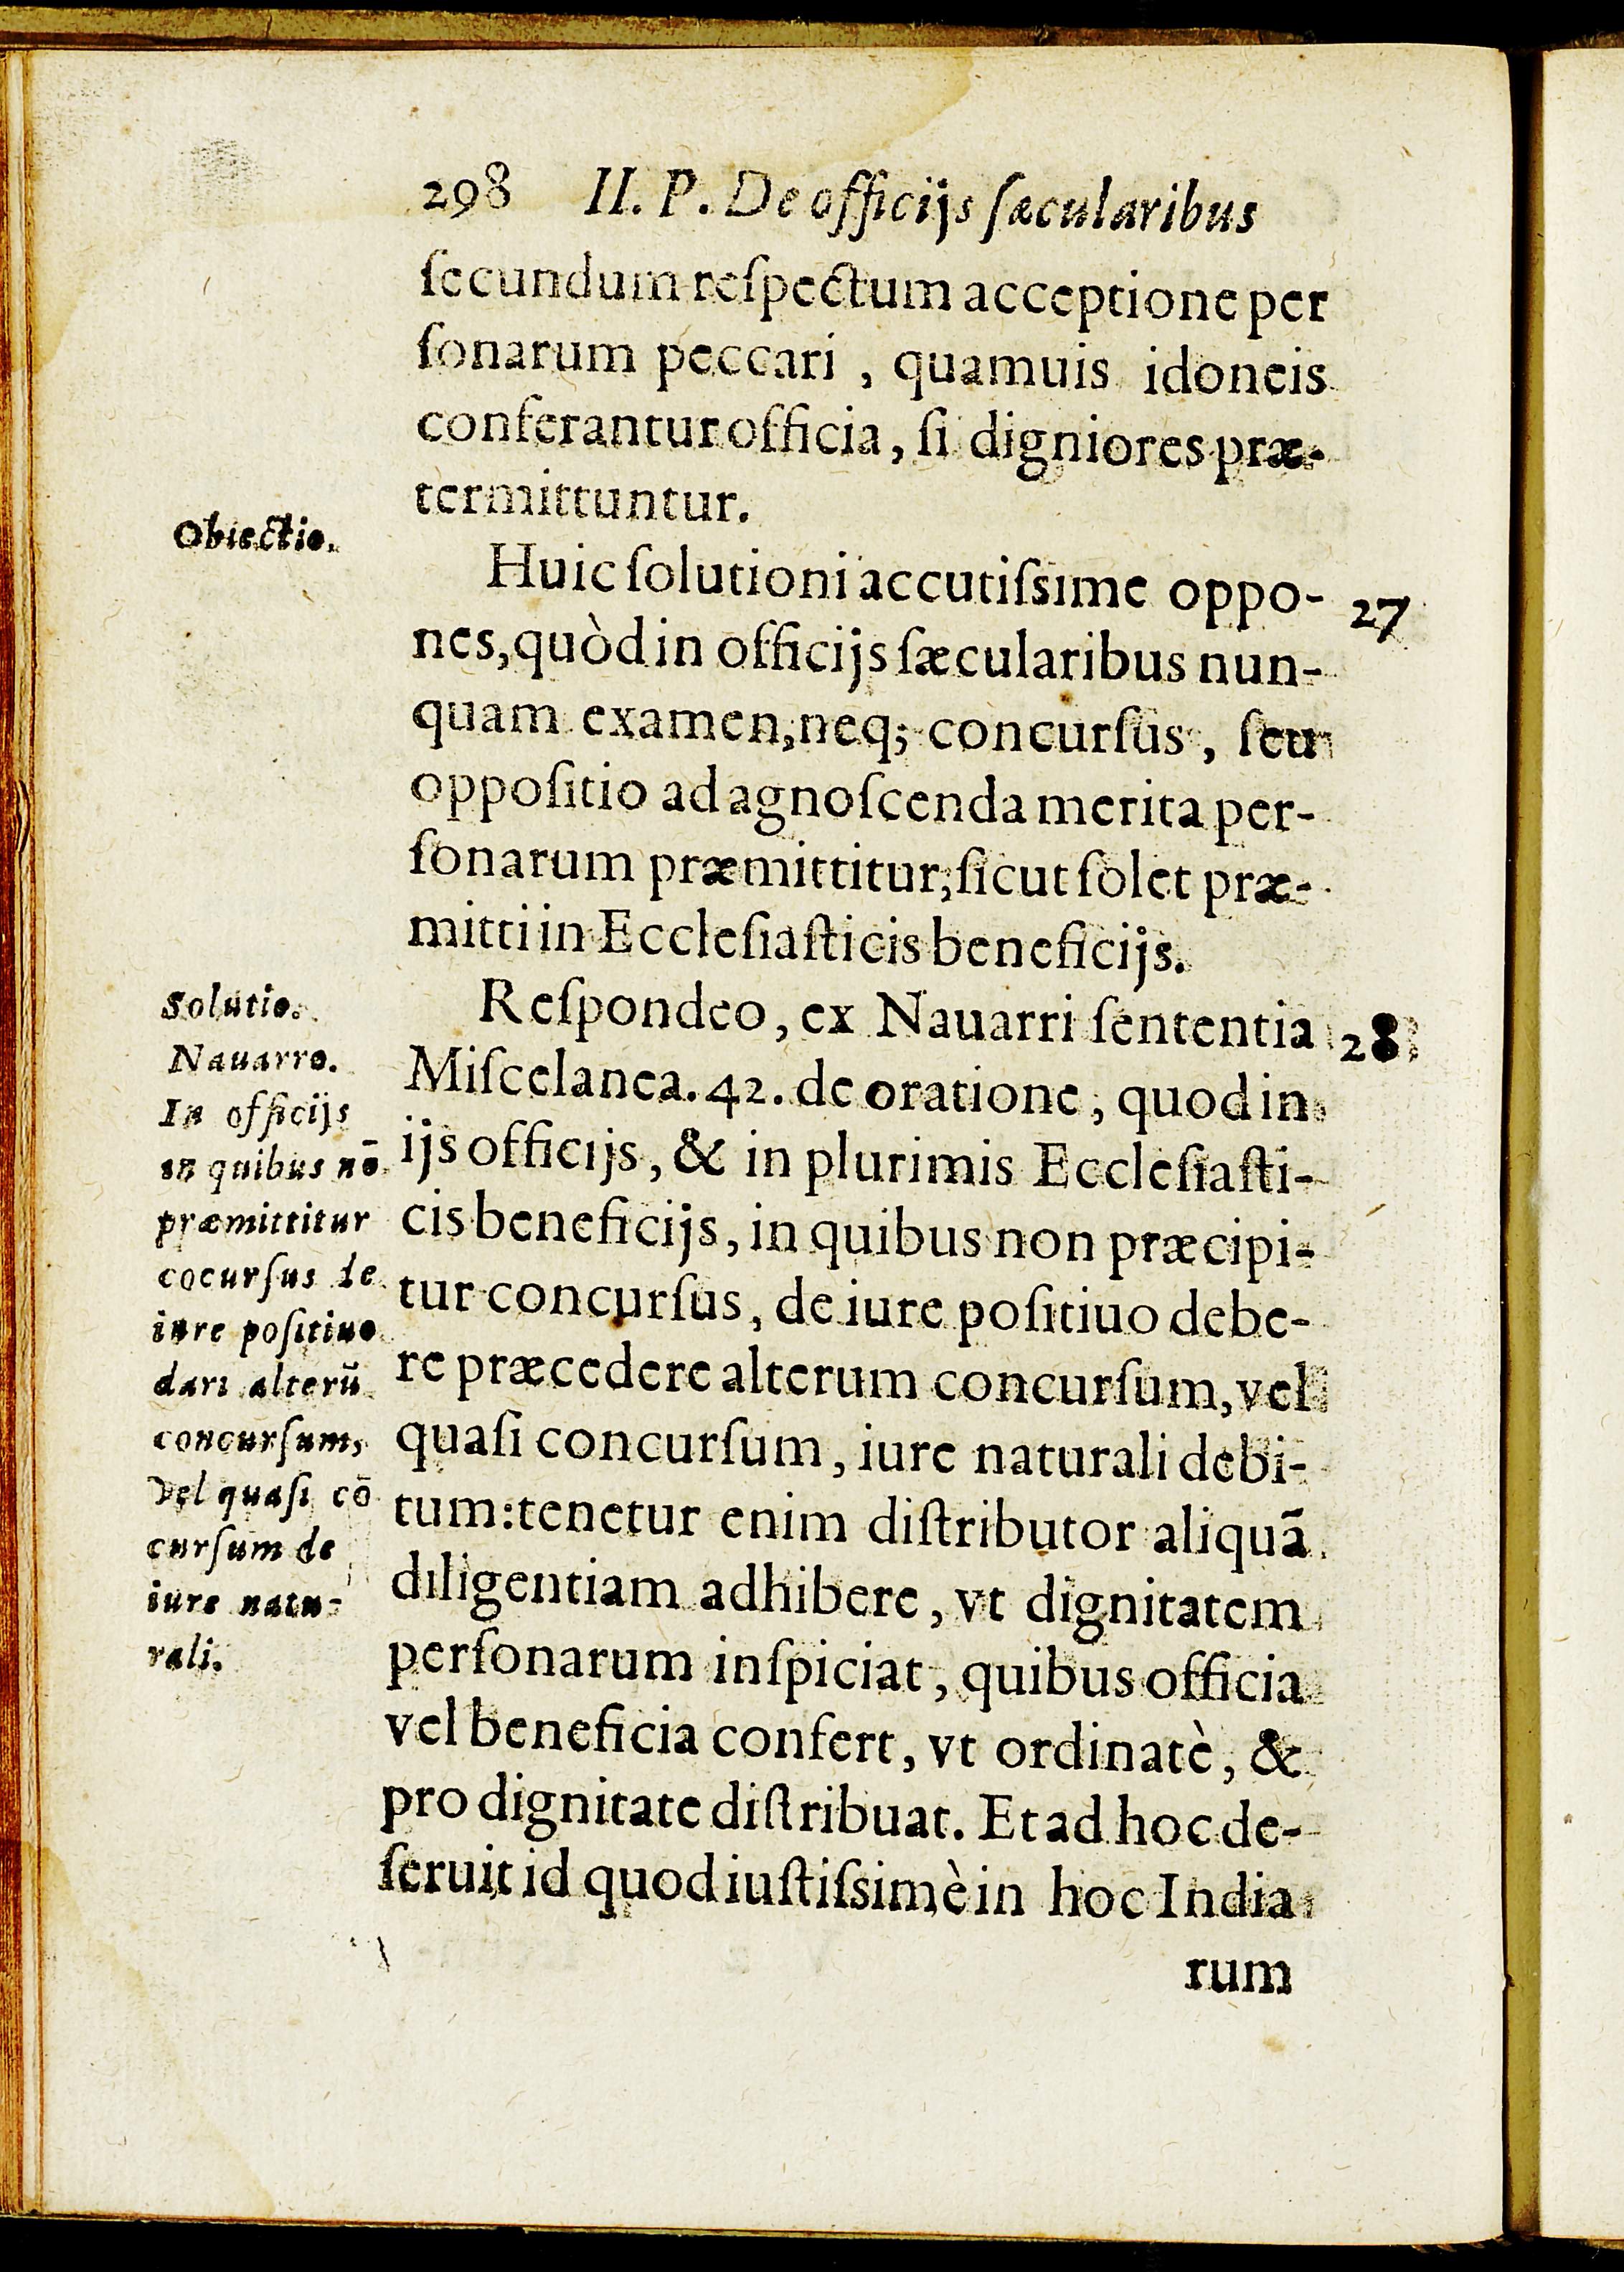 298 II. P. De officijs ſæcularibus
ſecundum reſpectum acceptione per
ſonarum peccari, quamuis idoneis
conferantur officia, ſi digniores præ-
termittuntur.
Obiectio.
Huic ſolutioni accutiſsime oppo- 27
nes, quòd in officijs ſæcularibus nun-
quam examen, neq; concurſus, ſeu
oppoſitio ad agnoſcenda merita per-
ſonarum præmittitur, ſicut ſolet præ-
mitti in Eccleſiaſticis beneficijs.
Solutio.
Nauarro.
In officijs
in quibus nō
præmittitur
cocurſus de
iure poſitiuo
dari alterũ
concurſum,
vel quaſi cō
curſum de
iure natu-
rali.
Reſpondeo, ex Nauarri ſententia 28
Miſcelanea. 42. de oratione, quod in
ijs officijs, & in plurimis Eccleſiaſti-
cis beneficijs, in quibus non præcipi-
tur concurſus, de iure poſitiuo debe-
re præcedere alterum concurſum, vel
quaſi concurſum, iure naturali debi-
tum: tenetur enim diſtributor aliquã
diligentiam adhibere, vt dignitatem
perſonarum inſpiciat, quibus officia
vel beneficia confert, vt ordinatè, &
pro dignitate diſtribuat. Et ad hoc de-
ſeruit id quod iuſtiſsimè in hoc India
rum